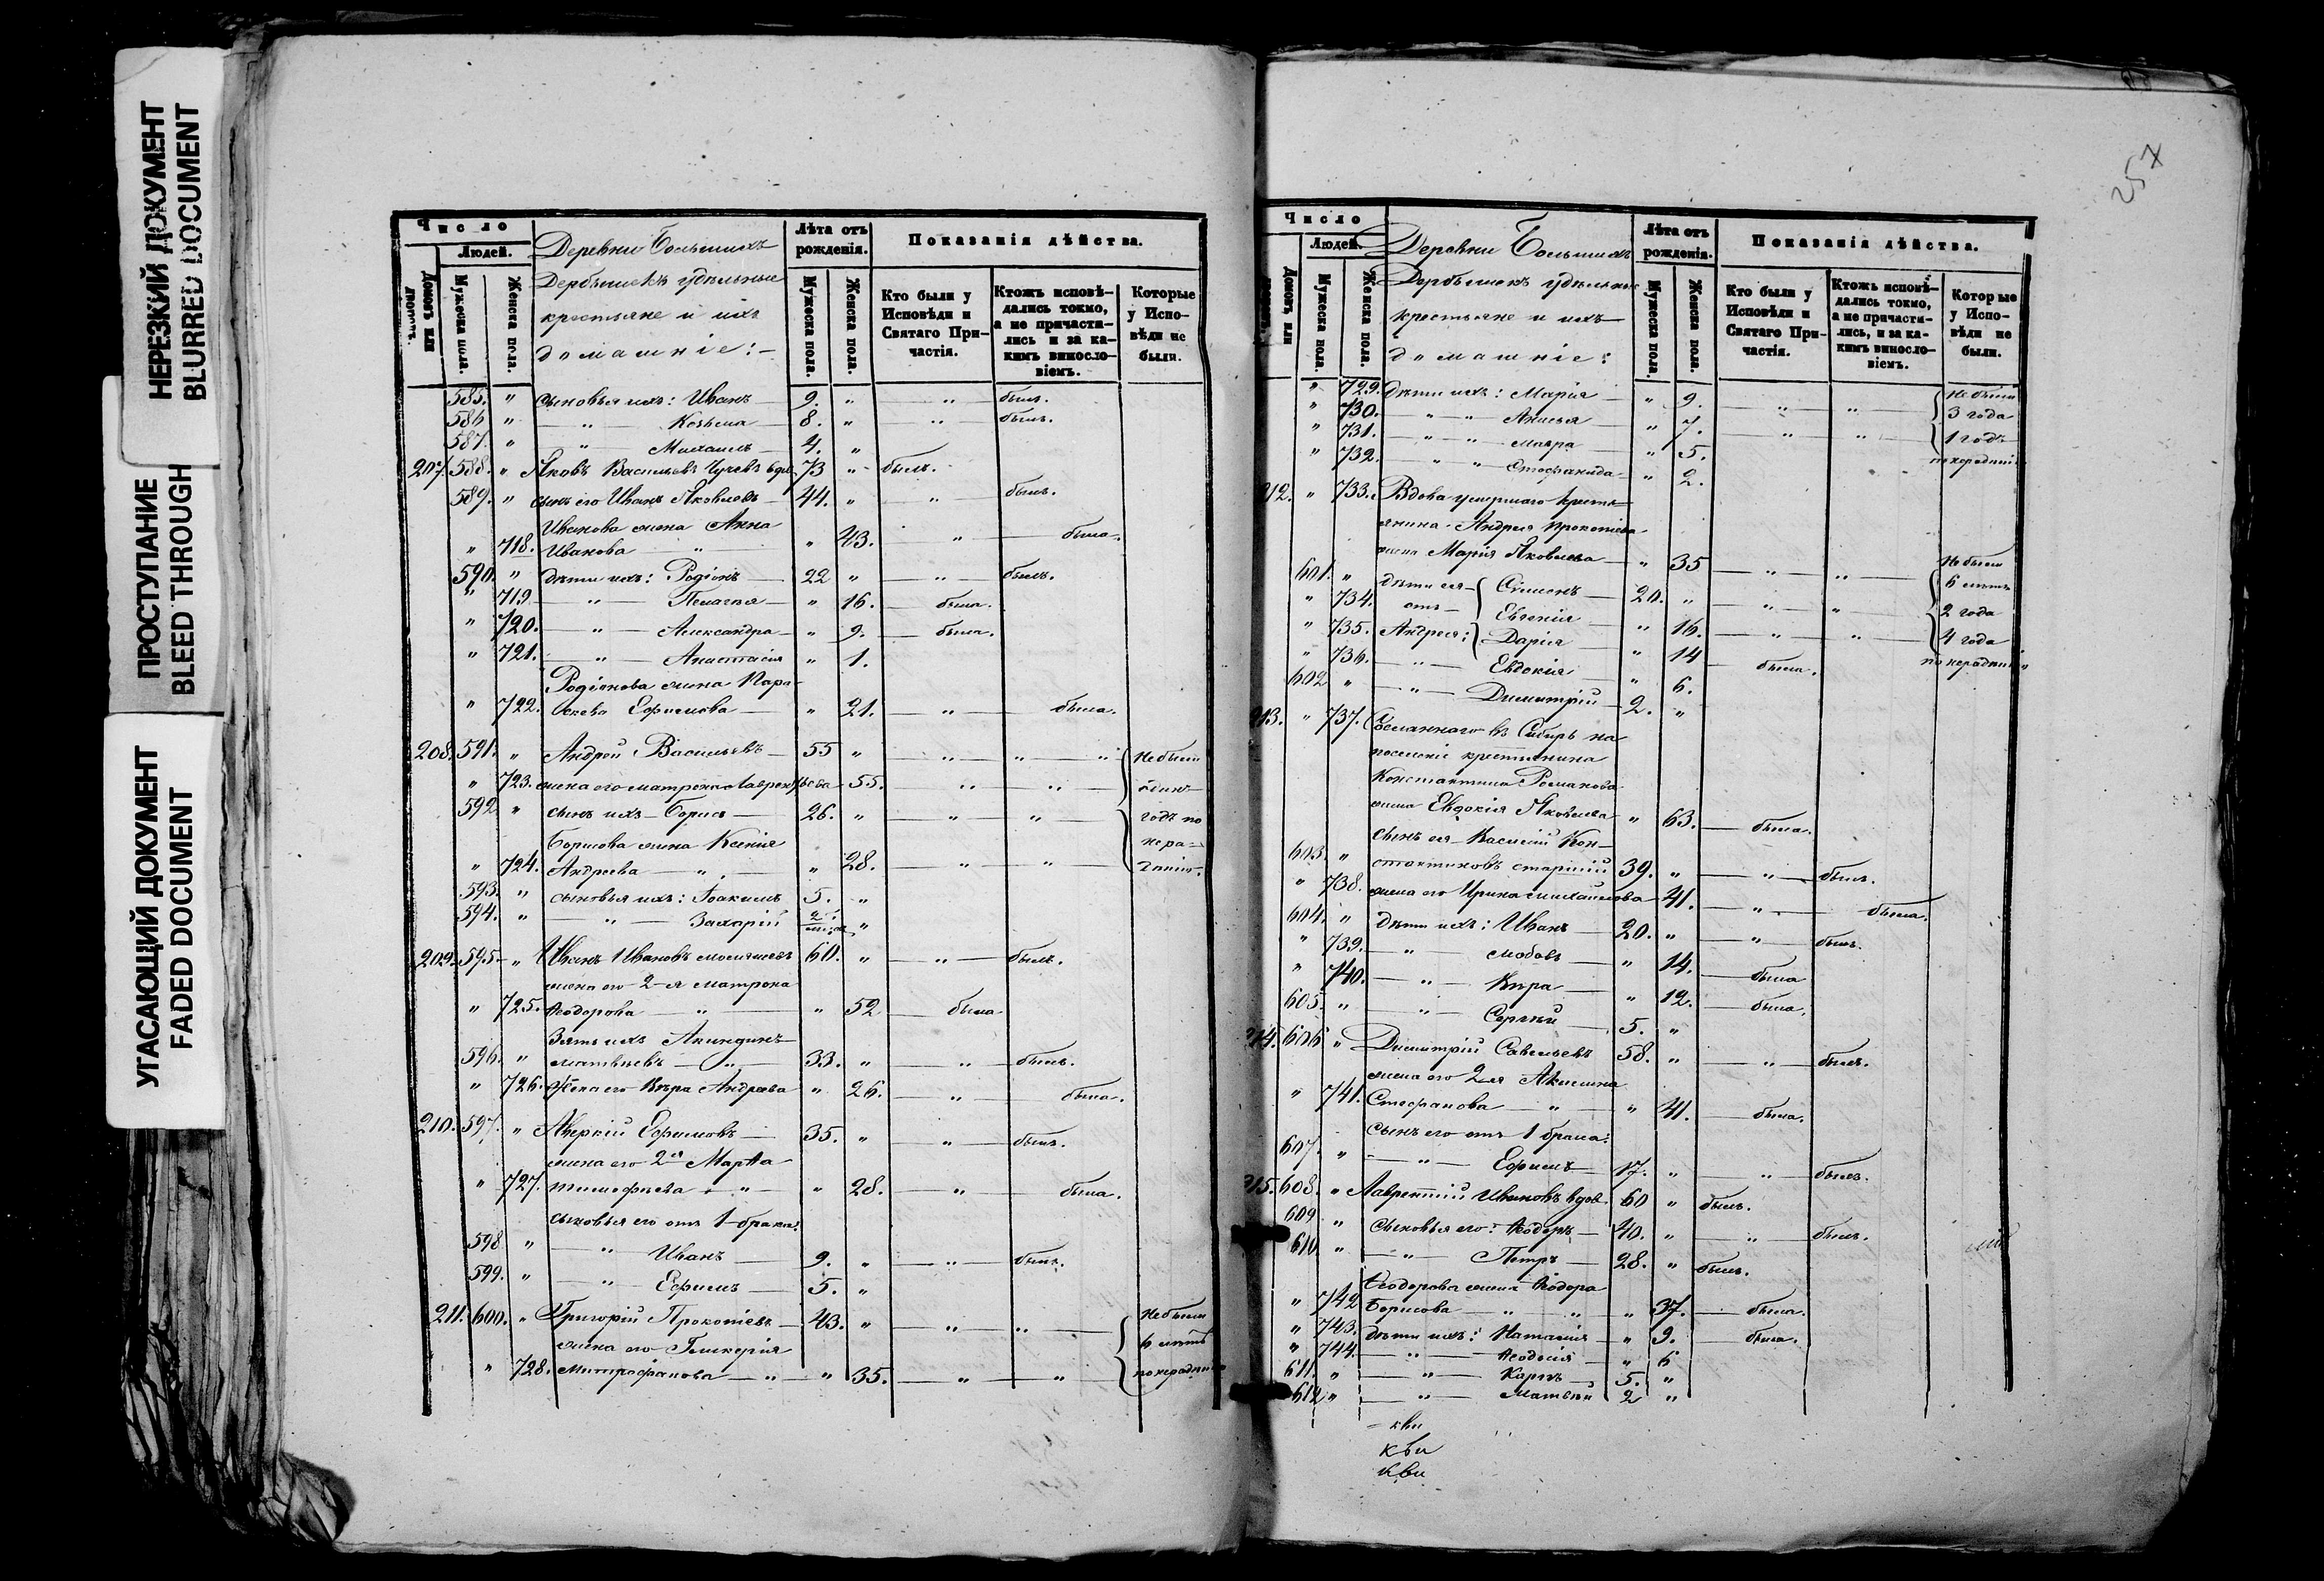 НЕРЕЗКИЙ ДОКУМЕНТ
BLURRED DOCUMENT
ПРОСТУПАНИЕ
BLEED THROUGH
УГАСАЮЩИЙ ДОКУМЕНТ
FADED DOCUMENT
Число
Людей.
Домовъ или
Мужеска пола.
Женска пола.
Деревни Большихъ
Дербышекъ удѣльные
крестьяне и ихъ
домашніе:
Лѣта отъ рожденія.
Мужеска пола.
Женска пола.
Показанія дѣйства.
Кто были у Исповѣди и Святаго Причастія.
Ктожъ исповѣдались токмо, а не причастились и за какимъ винословіемъ.
Которые у Исповѣди не были.
585. " сыновья ихъ: Иванъ 9. " " былъ.
586 " " Козьма 8. " " былъ.
587. " " Михаилъ 4. "
207. 588. " Яковъ Васильевъ вдов. 73 " былъ.
589. " сынъ его Иванъ Яковлевъ 44. " " былъ.
Иванова жена Анна
" 718. Иванова " " 43. " была.
590. " дѣти ихъ: Родіонъ 22 " " былъ.
" 719 " Пелагея " 16. была.
" 720. " Александра " 9. была.
" 721. " Анастасія " 1.
Родіонова жена Пара-
" 722. скева Ефимова " 21. " была.
208. 591. " Андрей Васильевъ 55 " " " " Не были
" 723. жена его Матрона Лаврентьева 55. " " одинъ
592 " сынъ ихъ Борисъ 26. " " " годъ по
Борисова жена Ксенія нера-
" 724. Андреева " " 28. " " дѣнію.
593. " сыновья ихъ: Іоакимъ 5. "
594. " " Захарій 2 "
209. 595. " Иванъ Ивановъ 60. " " былъ.
жена его 2-я Матрона
" 725. Ѳеодорова " " 52 была
Зять ихъ Акиндинъ
596. " Матвѣевъ " 33. " " былъ.
" 726. Жена его Вѣра Андреева " 26. " была.
210. 597. " Аверкій Ефимовъ 35. " " былъ.
жена его 2я Марѳа
" 727. Тимофеева " " 28. " была.
сыновья его отъ 1 брака:
598 " " Иванъ 9. " " былъ.
599. " " Ефимъ 5. "
211. 600. " Григорій Прокопіевъ 43. " " " Не были
жена его Гликерія 6 лѣтъ
" 728. Митрофанова " " 35. " " по нерадѣнію
257
Число
Людей.
Домовъ или
Мужеска пола.
Женска пола.
Деревни Большихъ
Дербышекъ удѣльные
крестьяне и ихъ
домашніе:
Лѣта отъ рожденія.
Мужеска пола.
Женска пола.
Показанія дѣйства.
Кто были у Исповѣди и Святаго Причастія.
Ктожъ исповѣдались токмо, а не причастились, и за какимъ винословіемъ.
Которые у Исповѣди не были.
" 729. дѣти ихъ: Марія " 9. " " Не были
" 730. " " Анисья " 7. " " 3 года
" 731. " " Мавра " 5. 1 годъ
" 732. " " Стефанида " 2. по нерадѣнію
212. " 733. Вдова умершаго кресть-
янина Андрея Прокопіева
жена Марія Яковлева " 35 " " Не были
601. " дѣти ея Симеонъ 20. " " " 6 лѣтъ
" 734. отъ Евгенія " 16. " " 2 года
" 735. Андрея: Дарія " 14 4 года
" 736. " Евдокія " 6. была. по нерадѣнію
602 " " Димитрій 2. "
213. " 737. Сосланнаго въ Сибирь на
поселеніе крестьянина
Константина Романова
жена Евдокія Яковлева " 63. была.
603. " сынъ ея Василій Кон-
стантиновъ старшій 39. " " былъ.
" 738. жена его Ирина Михаилова 41. " была.
604. " дѣти ихъ: Иванъ 20. " " былъ.
" 739. " Любовь " 14. была
" 740. " Вѣра " 12. была.
605. " " Сергѣй 5. "
214. 606 " Димитрій Савельевъ 58. " " былъ.
жена его 2-я Акилина
" 741. Стефанова " " 41. была.
сынъ его отъ 1 брака:
607. " " Ефимъ 17. " " былъ.
215. 608. " Лаврентій Ивановъ вдов. 60 " былъ.
609 " Сыновья его: Ѳеодоръ 40. " " былъ.
610 " " Петръ 28. " былъ.
Ѳеодорова жена Ѳеодора
" 742 Борисова " " " 37. была.
" 743. дѣти ихъ: Наталія " 9. была.
" 744. " Ѳеодосія " 6
611. " " Карпъ 5. "
612 " " Матвѣй 2 "